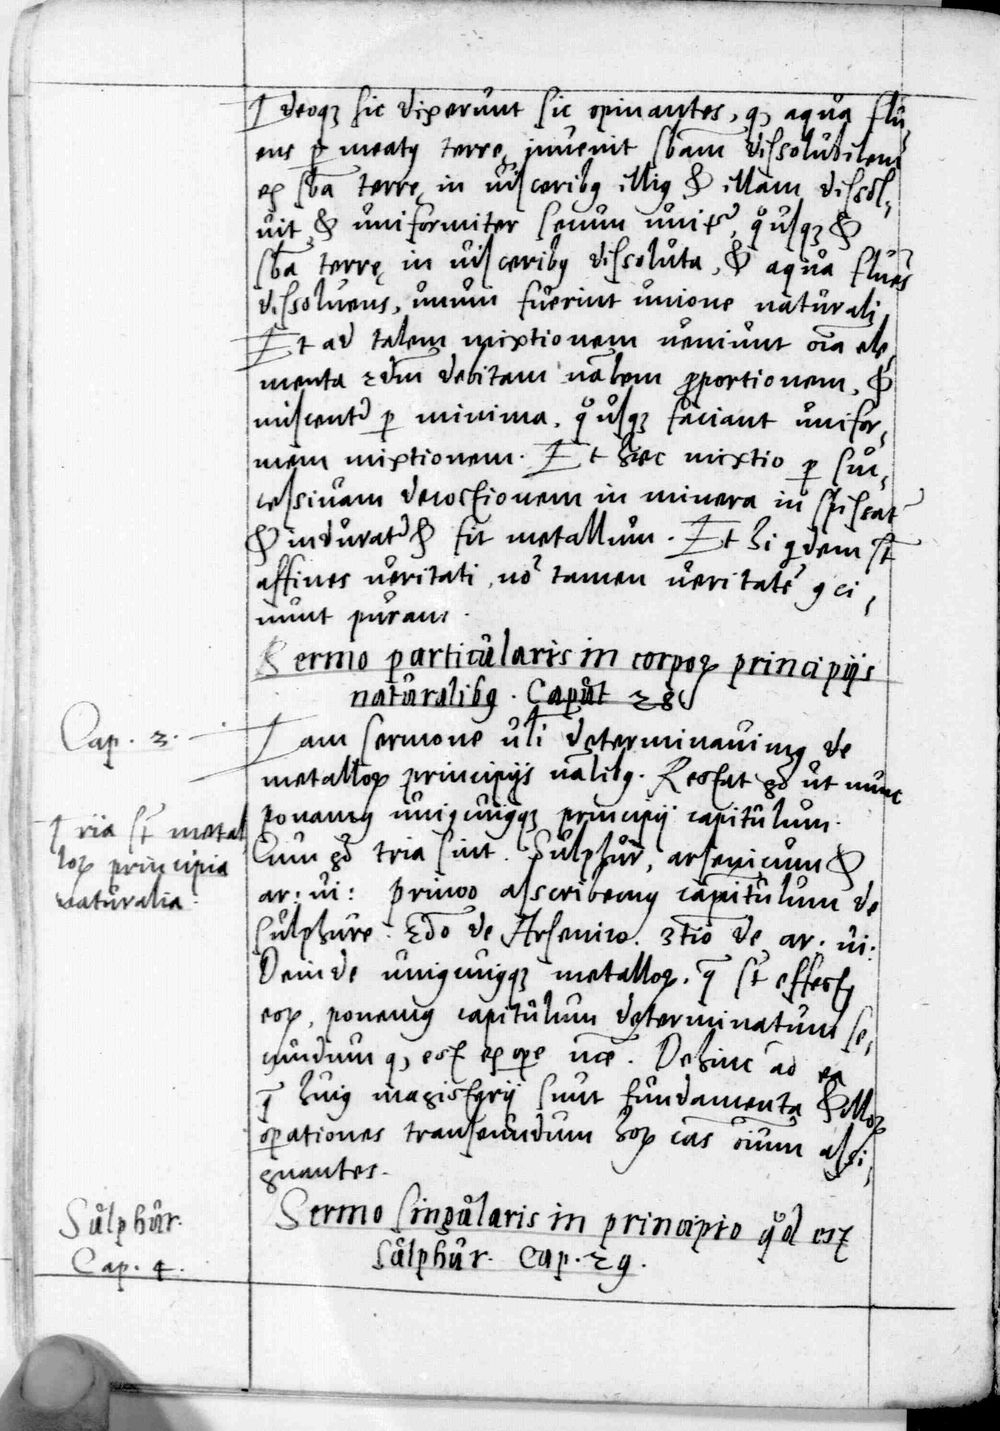 Ideoqꝫ sic dixerunt sic opinantes, ꝙ aqua flu-
ens ꝑ meatꝰ terrę inuenit sb̄am dissolubilem
ex sb̄a terrę in uisceribꝰ illiꝰ & illam dissol-
uit, & uniformiter secum unit̃, qͦusqꝫ &
sb̄a terrę in uisceribꝰ dissoluta, & aqua flues̃
dissoluens, unum fuerint unione naturali,
Et ad talem mixtionem ueniunt oīa ele-
menta 2dm̄ debitam nālem ꝓportionem, &
miscent᷑ ꝑ minima, qͦusqꝫ faciant unifor-
mem mixtionem. Et hęc mixtio ꝑ suc-
cessiuam decoctionem in minera inspissat᷑
& indurat᷑ & fit metallum. Et hi qͥdem st̄
affines ueritati, nō tamen ueritatē ꝯci-
nunt puram.
Sermo particularis in corpoꝝ principijs
naturalibꝰ. Caput 28
Iam sermone uľi determinauimꝰ de
metalloꝝ principijs nālibꝰ. Restat gͦ ut nunc
ponamꝰ uniꝰcuiꝰqꝫ principij capitulum.
Cum gͦ tria sint. Sulphur, arsenicum &
ar: ui: primo ascribemꝰ capitulum de
sulphure. 2do de Arsenico. 3tio de ar. ui:
Deinde uniꝰcuiꝰqꝫ metalloꝝ, q̄ st̄ effectꝰ
eoꝝ, ponemꝰ capitulum determinatum se-
cundum ꝙ est ex oꝑe nc̄e. Dehinc ad ea
q̄ huiꝰ magisterij sunt fundamenta & illoꝝ
oꝑationes transeundum hoꝝ cās oīum assi-
gnantes.
Sermo singularis in principio qͦd est
Sulphur. Cap. 29.
Cap. 3.
Tria st̄ metal
loꝝ principia
naturalia.
Sulphur.
Cap. 4.